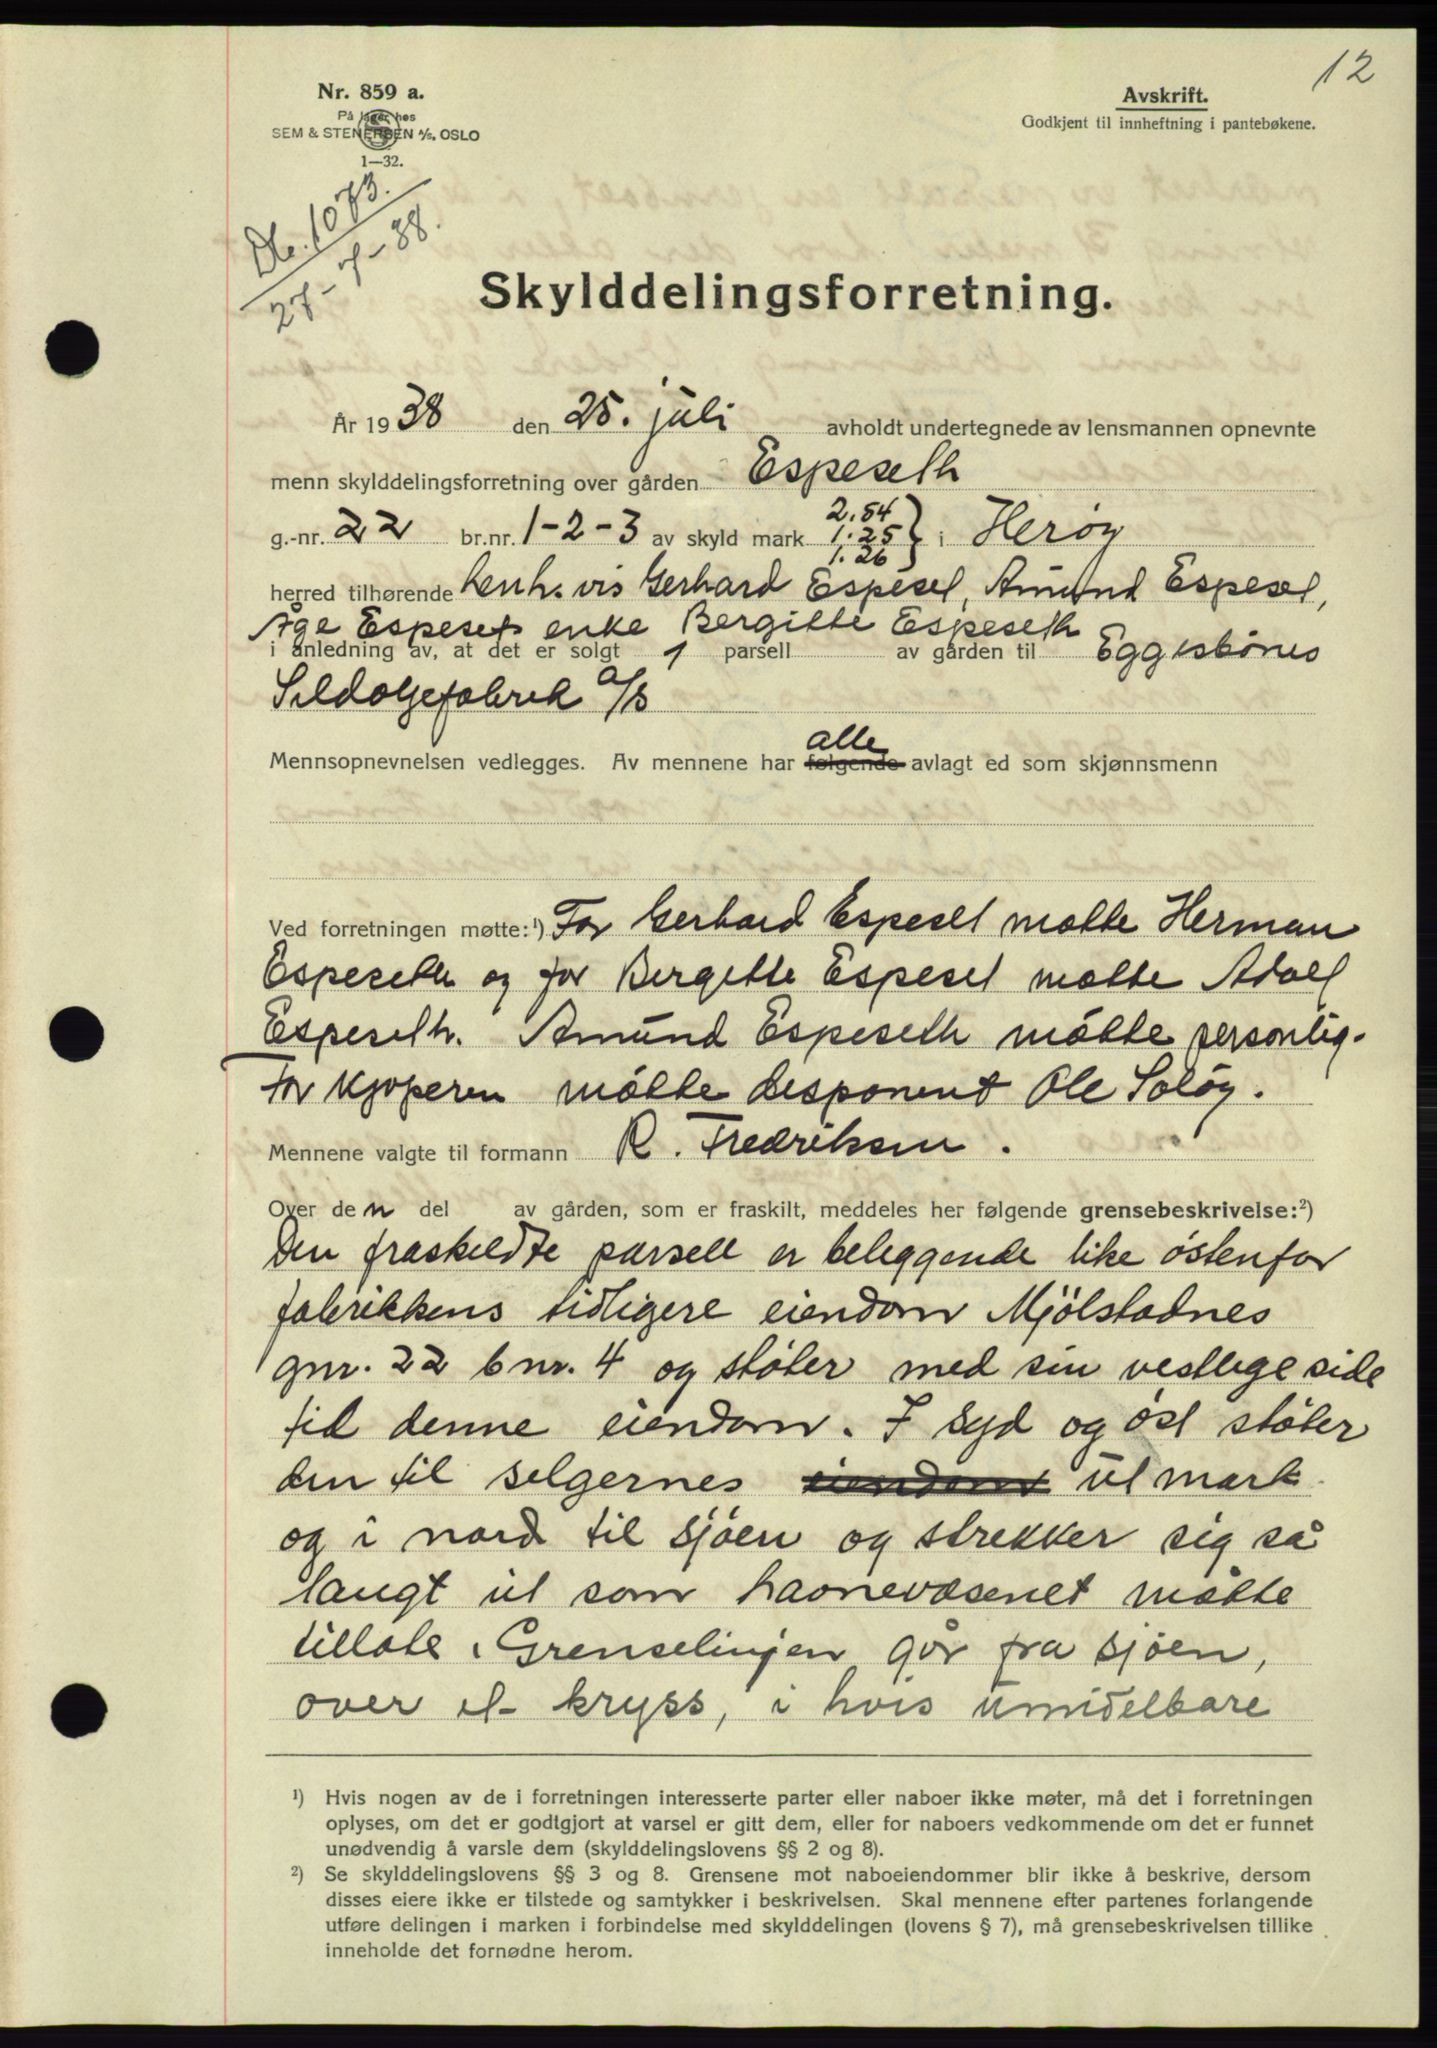 12
Nr. 859 a.
På lager hos
SEM & STENERSEN A/S, OSLO
1—32.
Avskrift.
Godkjent til innheftning i pantebøkene.
Db. 1073.
27-7-38.
Skylddelingsforretning.
År 1938 den 25. juli avholdt undertegnede av lensmannen opnevnte
menn skylddelingsforretning over gården Espeseth
g.-nr. 22 br.nr. 1-2-3 av skyld mark 2.54 1.25 1.26 } i Herøy
herred tilhørende henh.vis Gerhard Espeset, Amund Espeset,
Åge Espesets enke Bergitte Espeseth
i anledning av, at det er solgt 1 parsell av gården til Eggesbönes
Sildoljefabrik A/S
Mennsopnevnelsen vedlegges. Av mennene har alle følgende avlagt ed som skjønnsmenn
Ved forretningen møtte:¹) For Gerhard Espeset møtte Herman
Espeseth og for Bergitte Espeset møtte Adolf
Espeseth. Amund Espeseth møtte personlig.
For kjøperen møtte disponent Ole Soløy.
Mennene valgte til formann R. Fredriksen.
Over den del av gården, som er fraskilt, meddeles her følgende grensebeskrivelse:²)
Den fraskildte parsell er beliggende like östenfor
fabrikkens tidligere eiendom Mjölstadnes
gnr. 22 bnr. 4 og stöter med sin vestlige side
til denne eiendom. I syd og öst stöter
den til selgernes eiendom utmark
og i nord til sjöen og strekker sig så
langt ut som havnevæsenet måtte
tillate. Grenselinjen går fra sjöen,
over et kryss, i hvis umidelbare
¹) Hvis nogen av de i forretningen interesserte parter eller naboer ikke møter, må det i forretningen
oplyses, om det er godtgjort at varsel er gitt dem, eller for naboers vedkommende om det er funnet
unødvendig å varsle dem (skylddelingslovens §§ 2 og 8).
²) Se skylddelingslovens §§ 3 og 8. Grensene mot naboeiendommer blir ikke å beskrive, dersom
disses eiere ikke er tilstede og samtykker i beskrivelsen. Skal mennene efter partenes forlangende
utføre delingen i marken i forbindelse med skylddelingen (lovens § 7), må grensebeskrivelsen tillike
inneholde det fornødne herom.